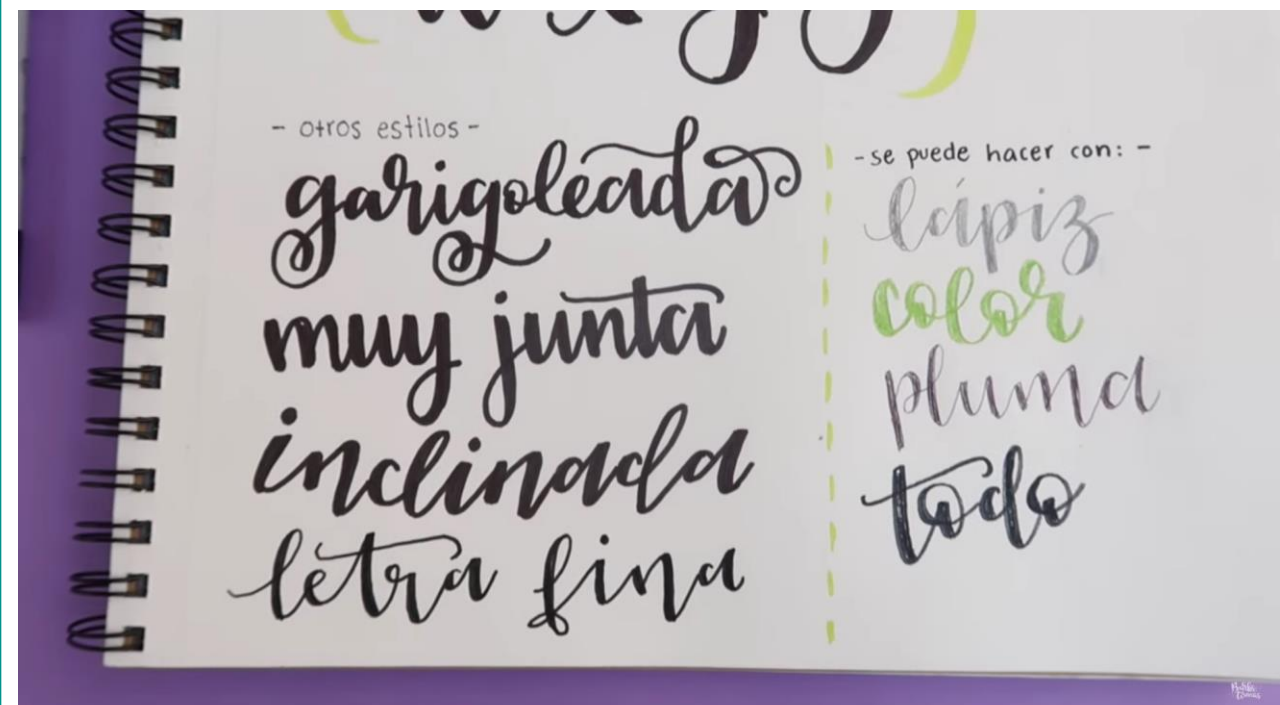 - otros estilos -
garigoleada
muy junta
inclinada
letra fina
- se puede hacer con: -
lápiz
color
pluma
todo